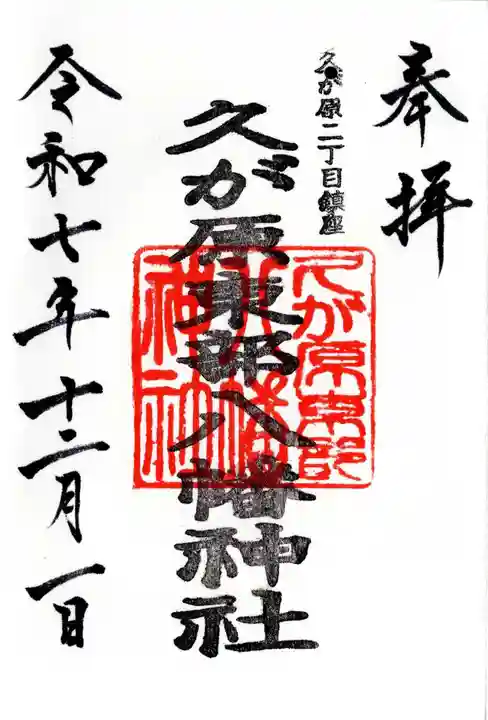 奉拝
久が原二丁目鎮座
久が原東部八幡神社
久が原東部
八幡
神社
令和七年十二月一日